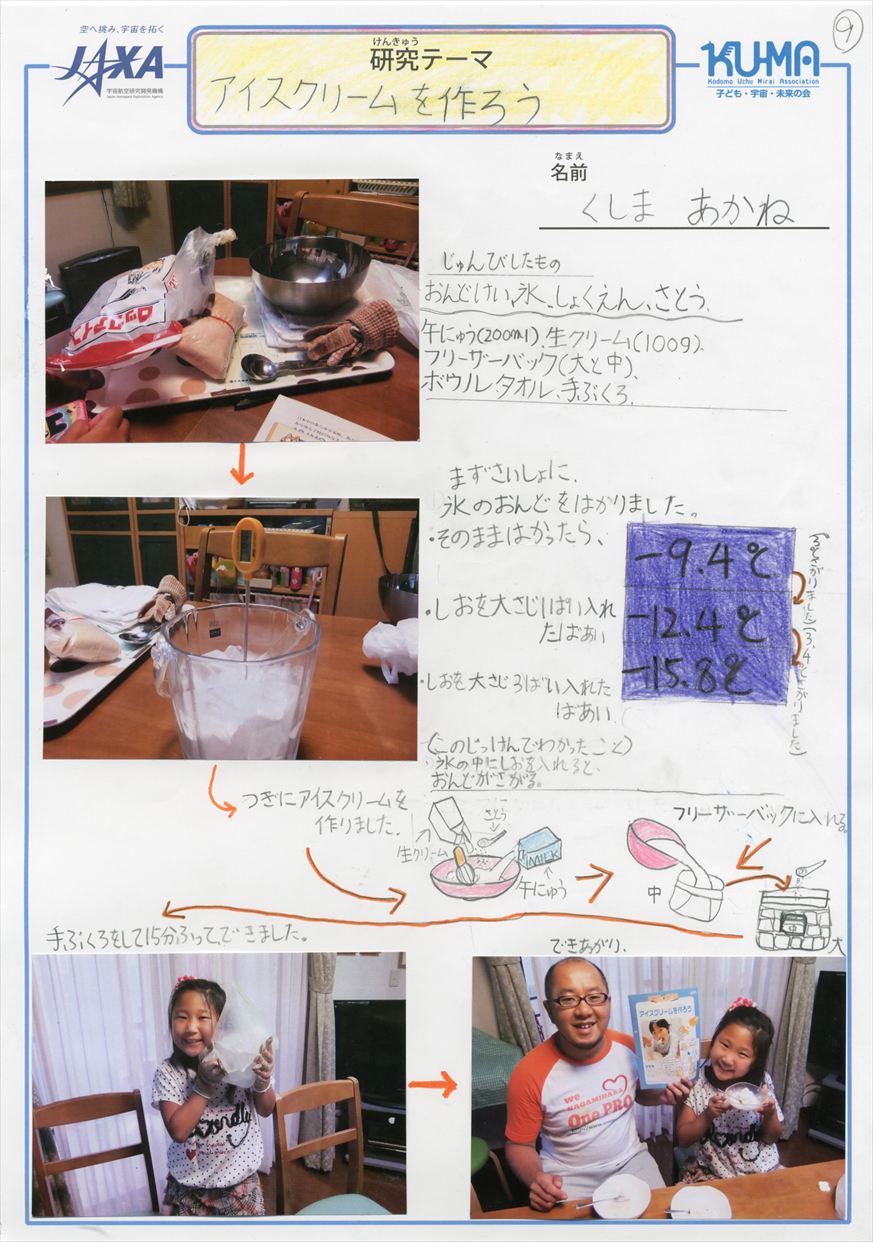 空へ挑み、宇宙を拓く
JAXA
宇宙航空研究開発機構
Japan Aerospace Exploration Agency
けんきゅう
研究テーマ
アイスクリームを作ろう
9
KU-MA
Kodomo Uchu Mirai Association
子ども・宇宙・未来の会
なまえ
名前
くしま あかね
じゅんびしたもの
おんどけい、氷、しょくえん、さとう、
牛にゅう(200ml)、生クリーム(100g)、
フリーザーバック(大と中)、
ボウル、タオル、手ぶくろ、
ロックアイス
まずさいしょに、
氷のおんどをはかりました。
・そのままはかったら、
-9.4℃
(3℃さがりました)
・しおを大さじ1ぱい入れ
たばあい
-12.4℃
(3,4℃さがりました)
・しおを大さじ3ばい入れた
ばあい
-15.8℃
(このじっけんでわかったこと)
氷の中にしおを入れると、
おんどがさがる。
つぎにアイスクリームを
作りました。
さとう
生クリーム
MILK
牛にゅう
フリーザーバックに入れる。
中
大
手ぶくろをして15分ふって、できました。
できあがり、
アイスクリームを作ろう
we
SAGAMIHARA
One PRO